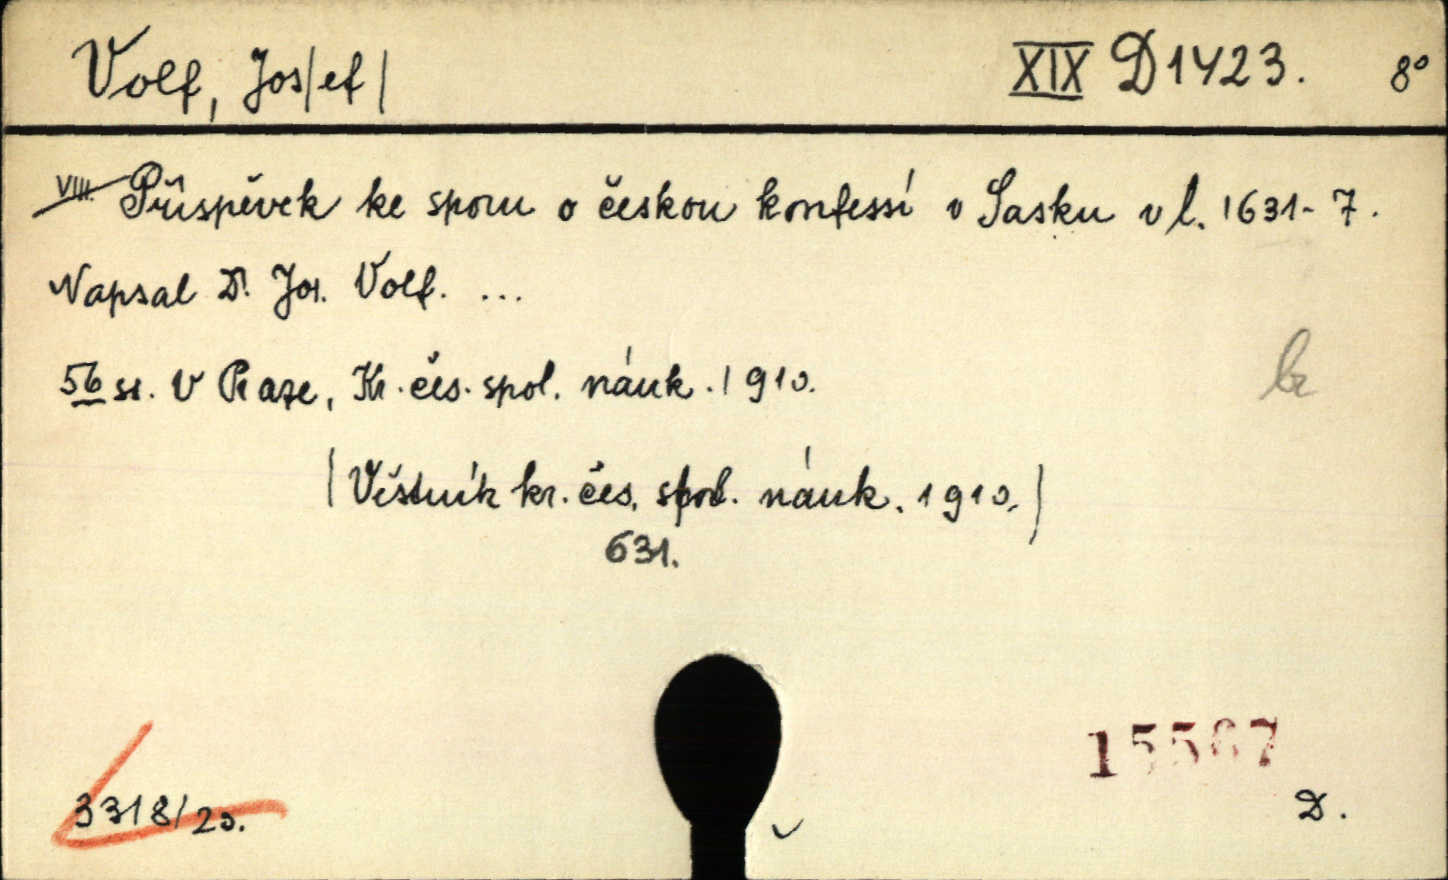 Volf, Jos|ef| XIX D 1423. 8°
VIII. Příspěvek ke sporu o českou konfessí v Sasku v l. 1631-7.
Napsal Dr. Jos. Volf. ...
56 st. V Praze, Kr. čes. spol. náuk. 1910.
br
|Věstník kr. čes. spol. náuk. 1910.|
631.
15567
3318/20.
D.